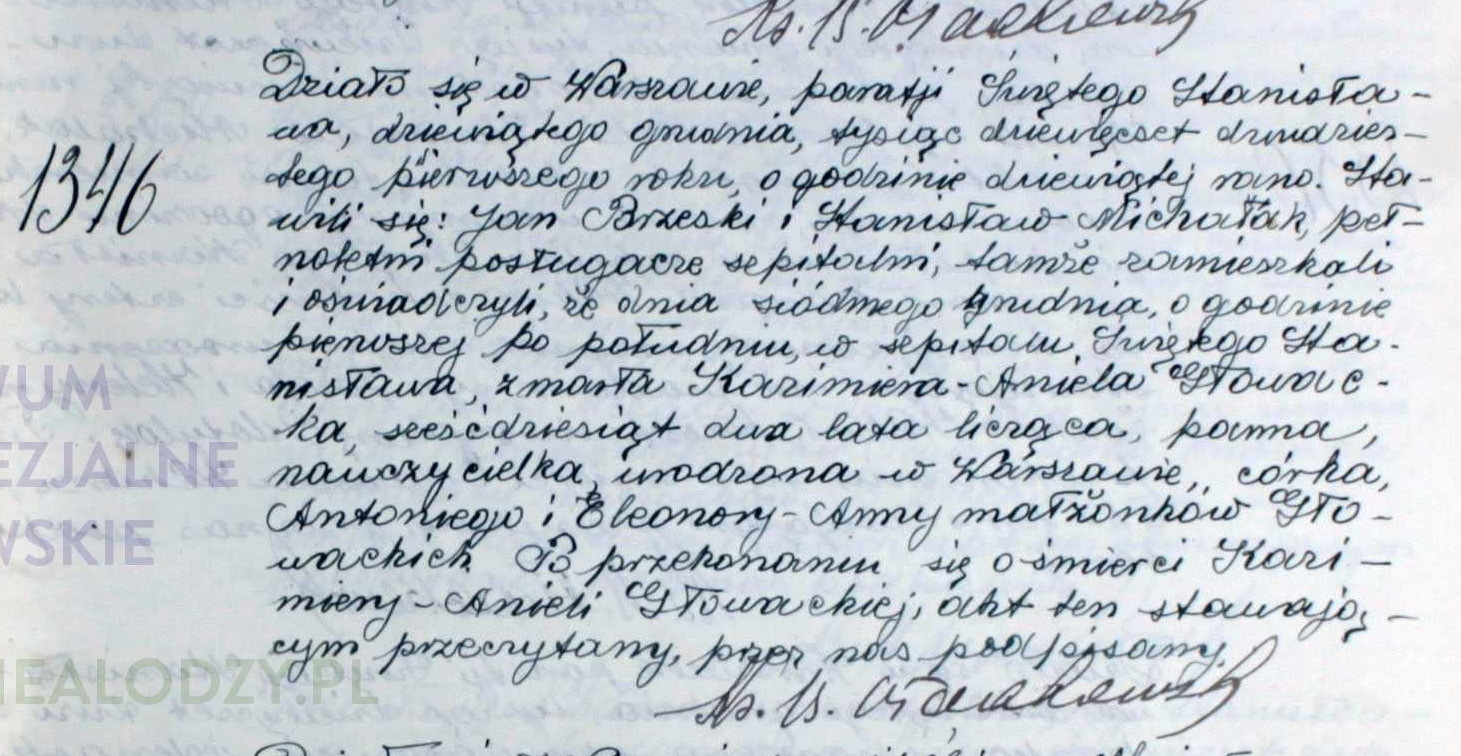 Ks. B.
Działo się w Warszawie, parafji Świętego Stanisła-
wa, dziewiątego grudnia, tysiąc dziewięćset dwudzies-
1346
tego pierwszego roku, o godzinie dziewiątej rano. Sta-
wili się: Jan Brzeski i Stanisław Michalak, peł-
noletni posługacze szpitalni, tamże zamieszkali
i oświadczyli, że dnia siódmego grudnia, o godzinie
pierwszej po południu, w szpitalu Świętego Sta-
nisława, zmarła Kazimiera-Aniela Głowac-
WUM
ka, sześćdziesiąt dwa lata licząca, panna,
EZJALNE
nauczycielka, urodzona w Warszawie, córka,
Antoniego i Eleonory-Anny małżonków Gło-
WSKIE
wackich. Po przekonaniu się o śmierci Kazi-
miery-Anieli Głowackiej, akt ten stawają-
cym przeczytany, przez nas podpisany.
NEALODZY.PL
Ks. B.